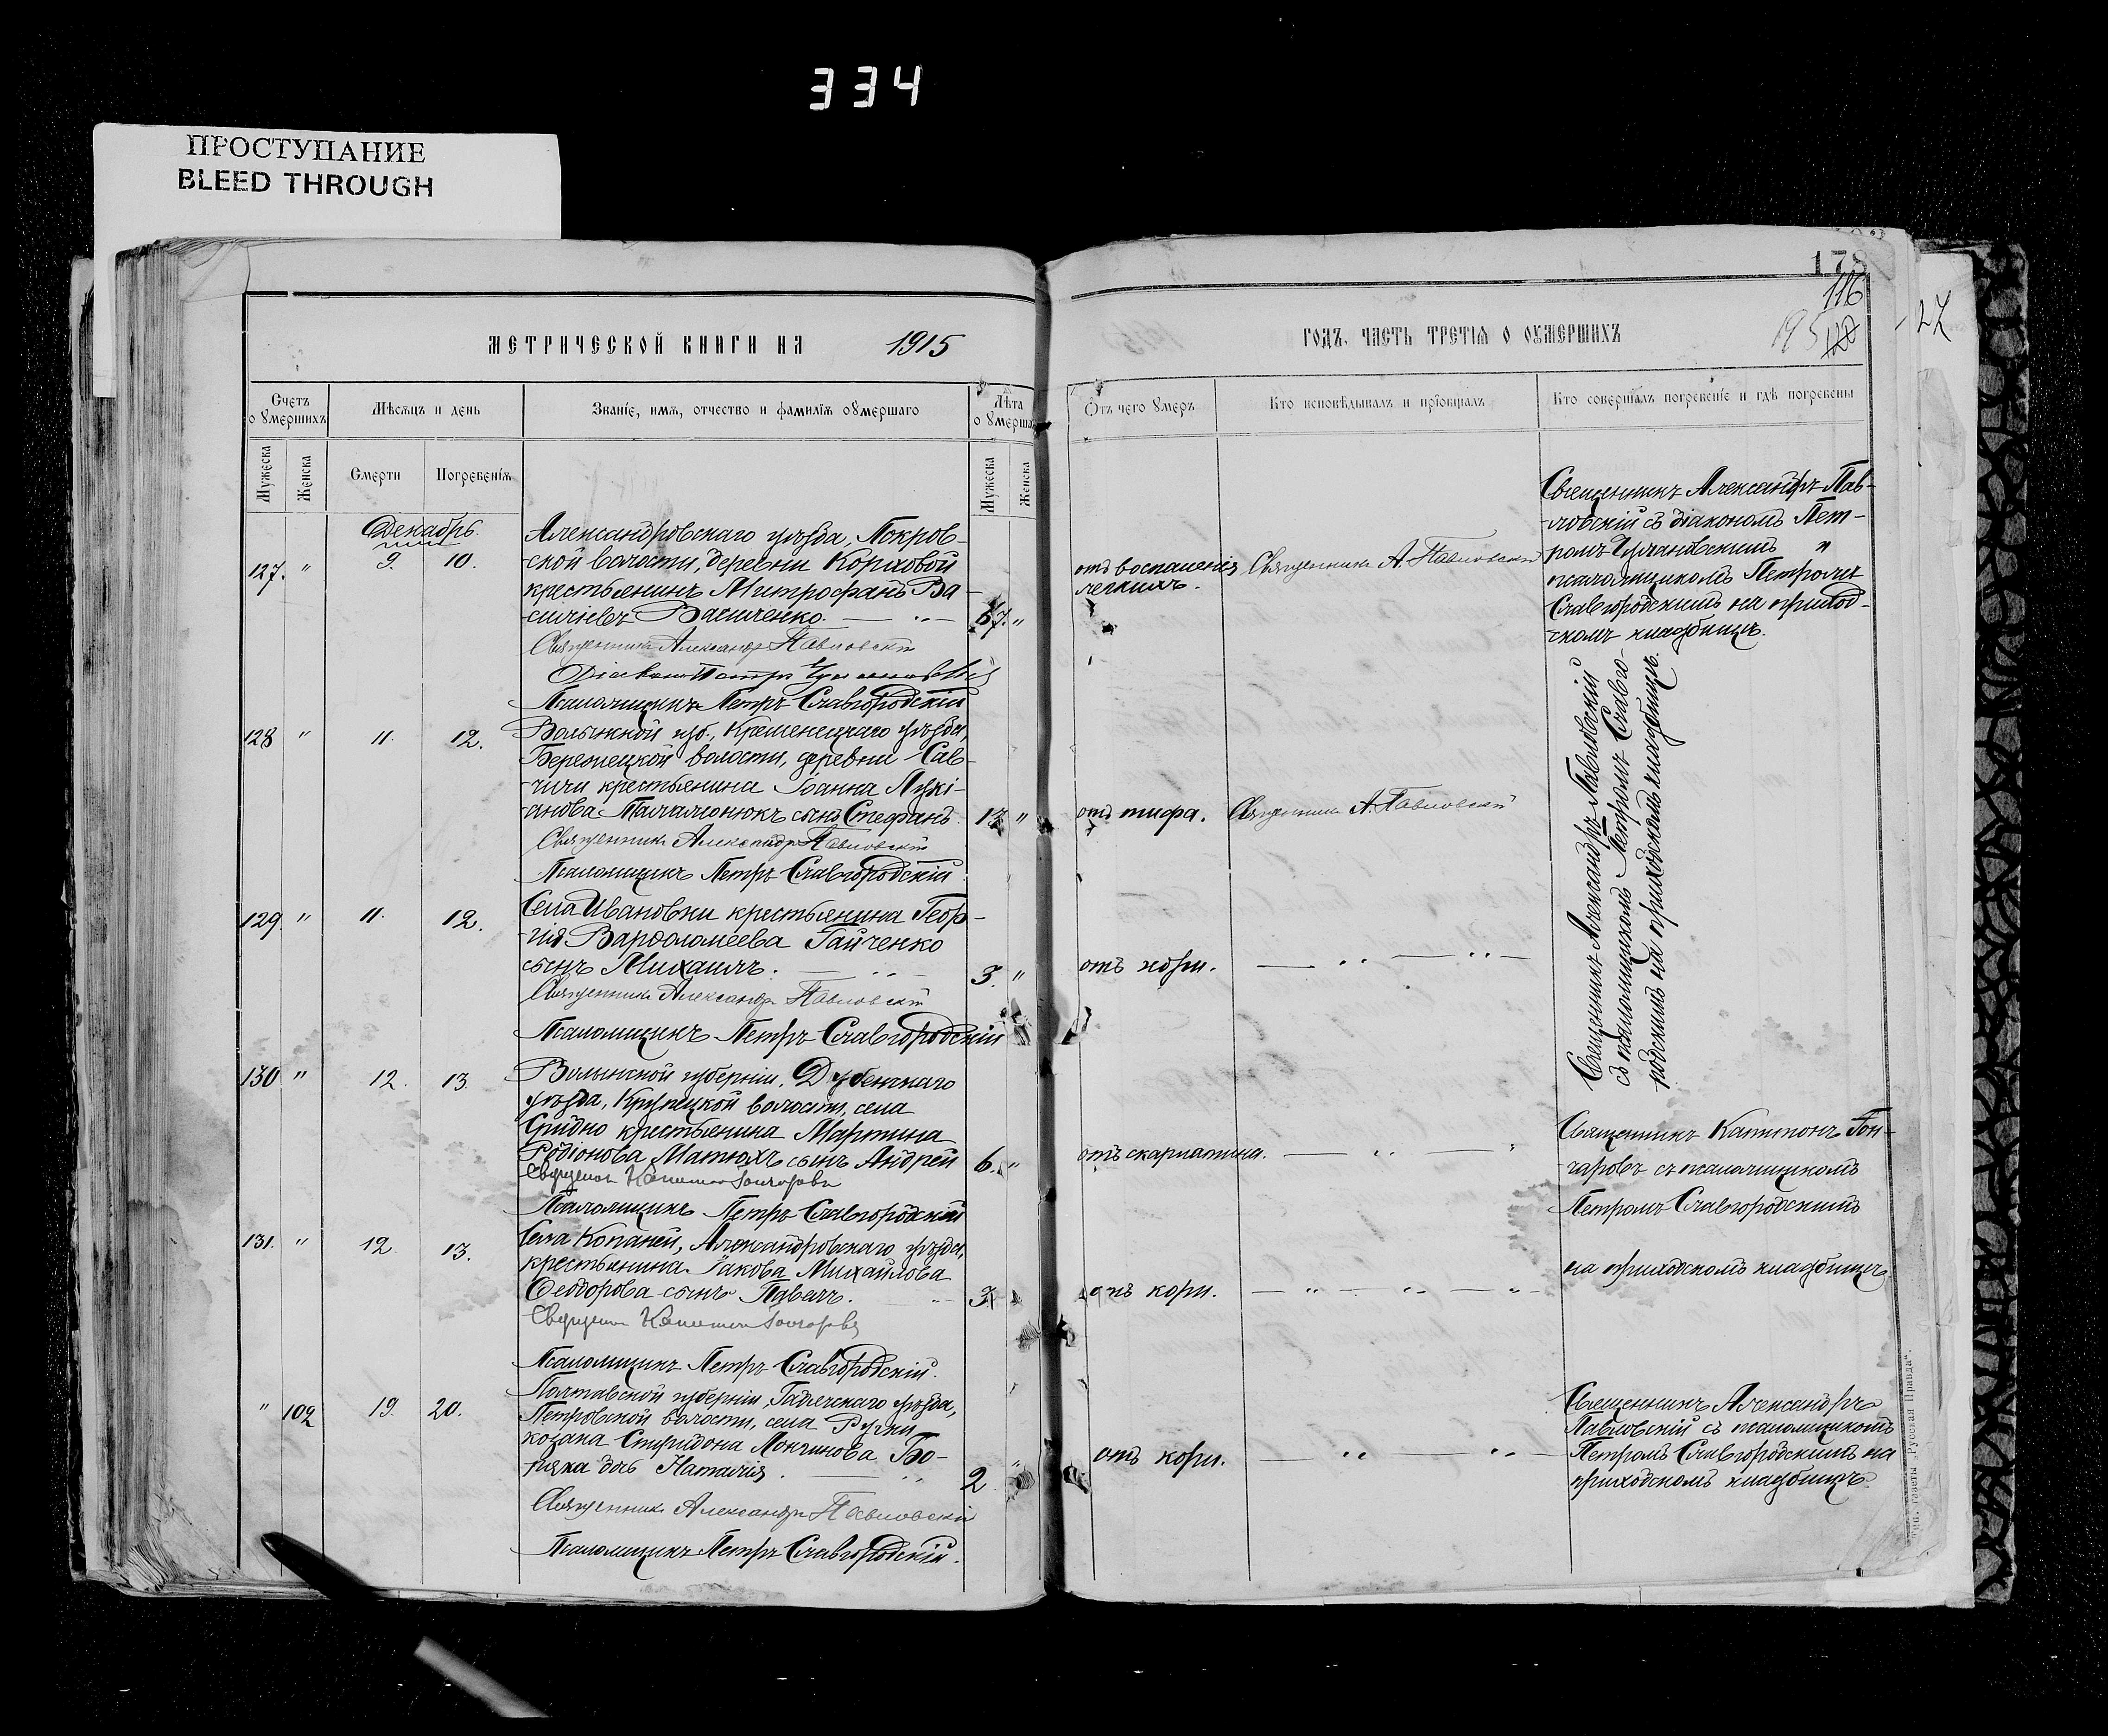 334
ПРОСТУПАНИЕ
BLEED THROUGH
МЕТРИЧЕСКОЙ КНИГИ НА 1915
Счетъ о умершихъ
Мѣсяцъ и день
Званіе, имя, отчество и фамилія умершаго
Лѣта
Мужеска
Женска
Смерти
Погребенія
Мужеска
Женска
Декабрь
127. " 9. 10.
Александровскаго уѣзда, Покров-
ской волости, деревни
крестьянинъ Митрофанъ Ва-
сильевъ Василенко. 67. "
Священникъ Александръ Павловскій
Діаконъ Петръ
Псаломщикъ Петръ Славгородскій
128 " 11. 12.
Волынской губ., Кременецкаго уѣзда,
Бережецкой волости, деревни Сав-
-чичи крестьянина Іоанна Лукі-
анова сынъ Стефанъ. 13 "
Священникъ Александръ Павловскій
Псаломщикъ Петръ Славгородскій
129. " 11. 12.
Села Ивановки крестьянина Геор-
-гія Варѳоломеева Гайченко
сынъ Михаилъ. 3. "
Священникъ Александръ Павловскій
Псаломщикъ Петръ Славгородскій
130 " 12. 13.
Волынской губерніи, Дубенскаго
уѣзда, Крупецкой волости, села
крестьянина Мартина
Родіонова Матюхъ сынъ Андрей 6. "
Священникъ Капитонъ Гончаровъ
Псаломщикъ Петръ Славгородскій
131. " 12. 13.
Села Копаней, Александровскаго уѣзда,
крестьянина Іакова Михайлова
Ѳеодорова сынъ Павелъ. 3
Священникъ Капитонъ Гончаровъ
Псаломщикъ Петръ Славгородскій.
" 102 19. 20.
Полтавской губерніи, Гадячскаго уѣзда,
Петровской волости, села
козака Спиридона Лонгинова Бо-
дочь Наталія. 2
Священникъ Александръ Павловскій
Псаломщикъ Петръ Славгородскій.
116
27
ГОДЪ, ЧАСТЬ ТРЕТІЯ О УМЕРШИХЪ
Отъ чего умеръ
Кто исповѣдывалъ и пріобщалъ
Кто совершалъ погребеніе и гдѣ погребены
отъ воспаленія
легкихъ.
Священникъ А. Павловскій
Священникъ Александръ Пав-
-ловскій съ діакономъ Пет-
ромъ "
псаломщикомъ Петромъ
Славгородскимъ на приход-
скомъ кладбищѣ.
отъ тифа. Священникъ А. Павловскій
Священникъ Александръ Павловскій
съ псаломщикомъ Петромъ Славго-
родскимъ на приходскомъ кладбищѣ.
отъ кори.
отъ скарлатина.
Священникъ Капитонъ Гон-
чаровъ съ псаломщикомъ
Петромъ Славгородскимъ
на приходскомъ кладбищѣ
отъ кори.
отъ кори.
Священникъ Александръ
Павловскій съ псаломщикомъ
Петромъ Славгородскимъ на
приходскомъ кладбищѣ.
Тип. газеты „Русская Правда“.